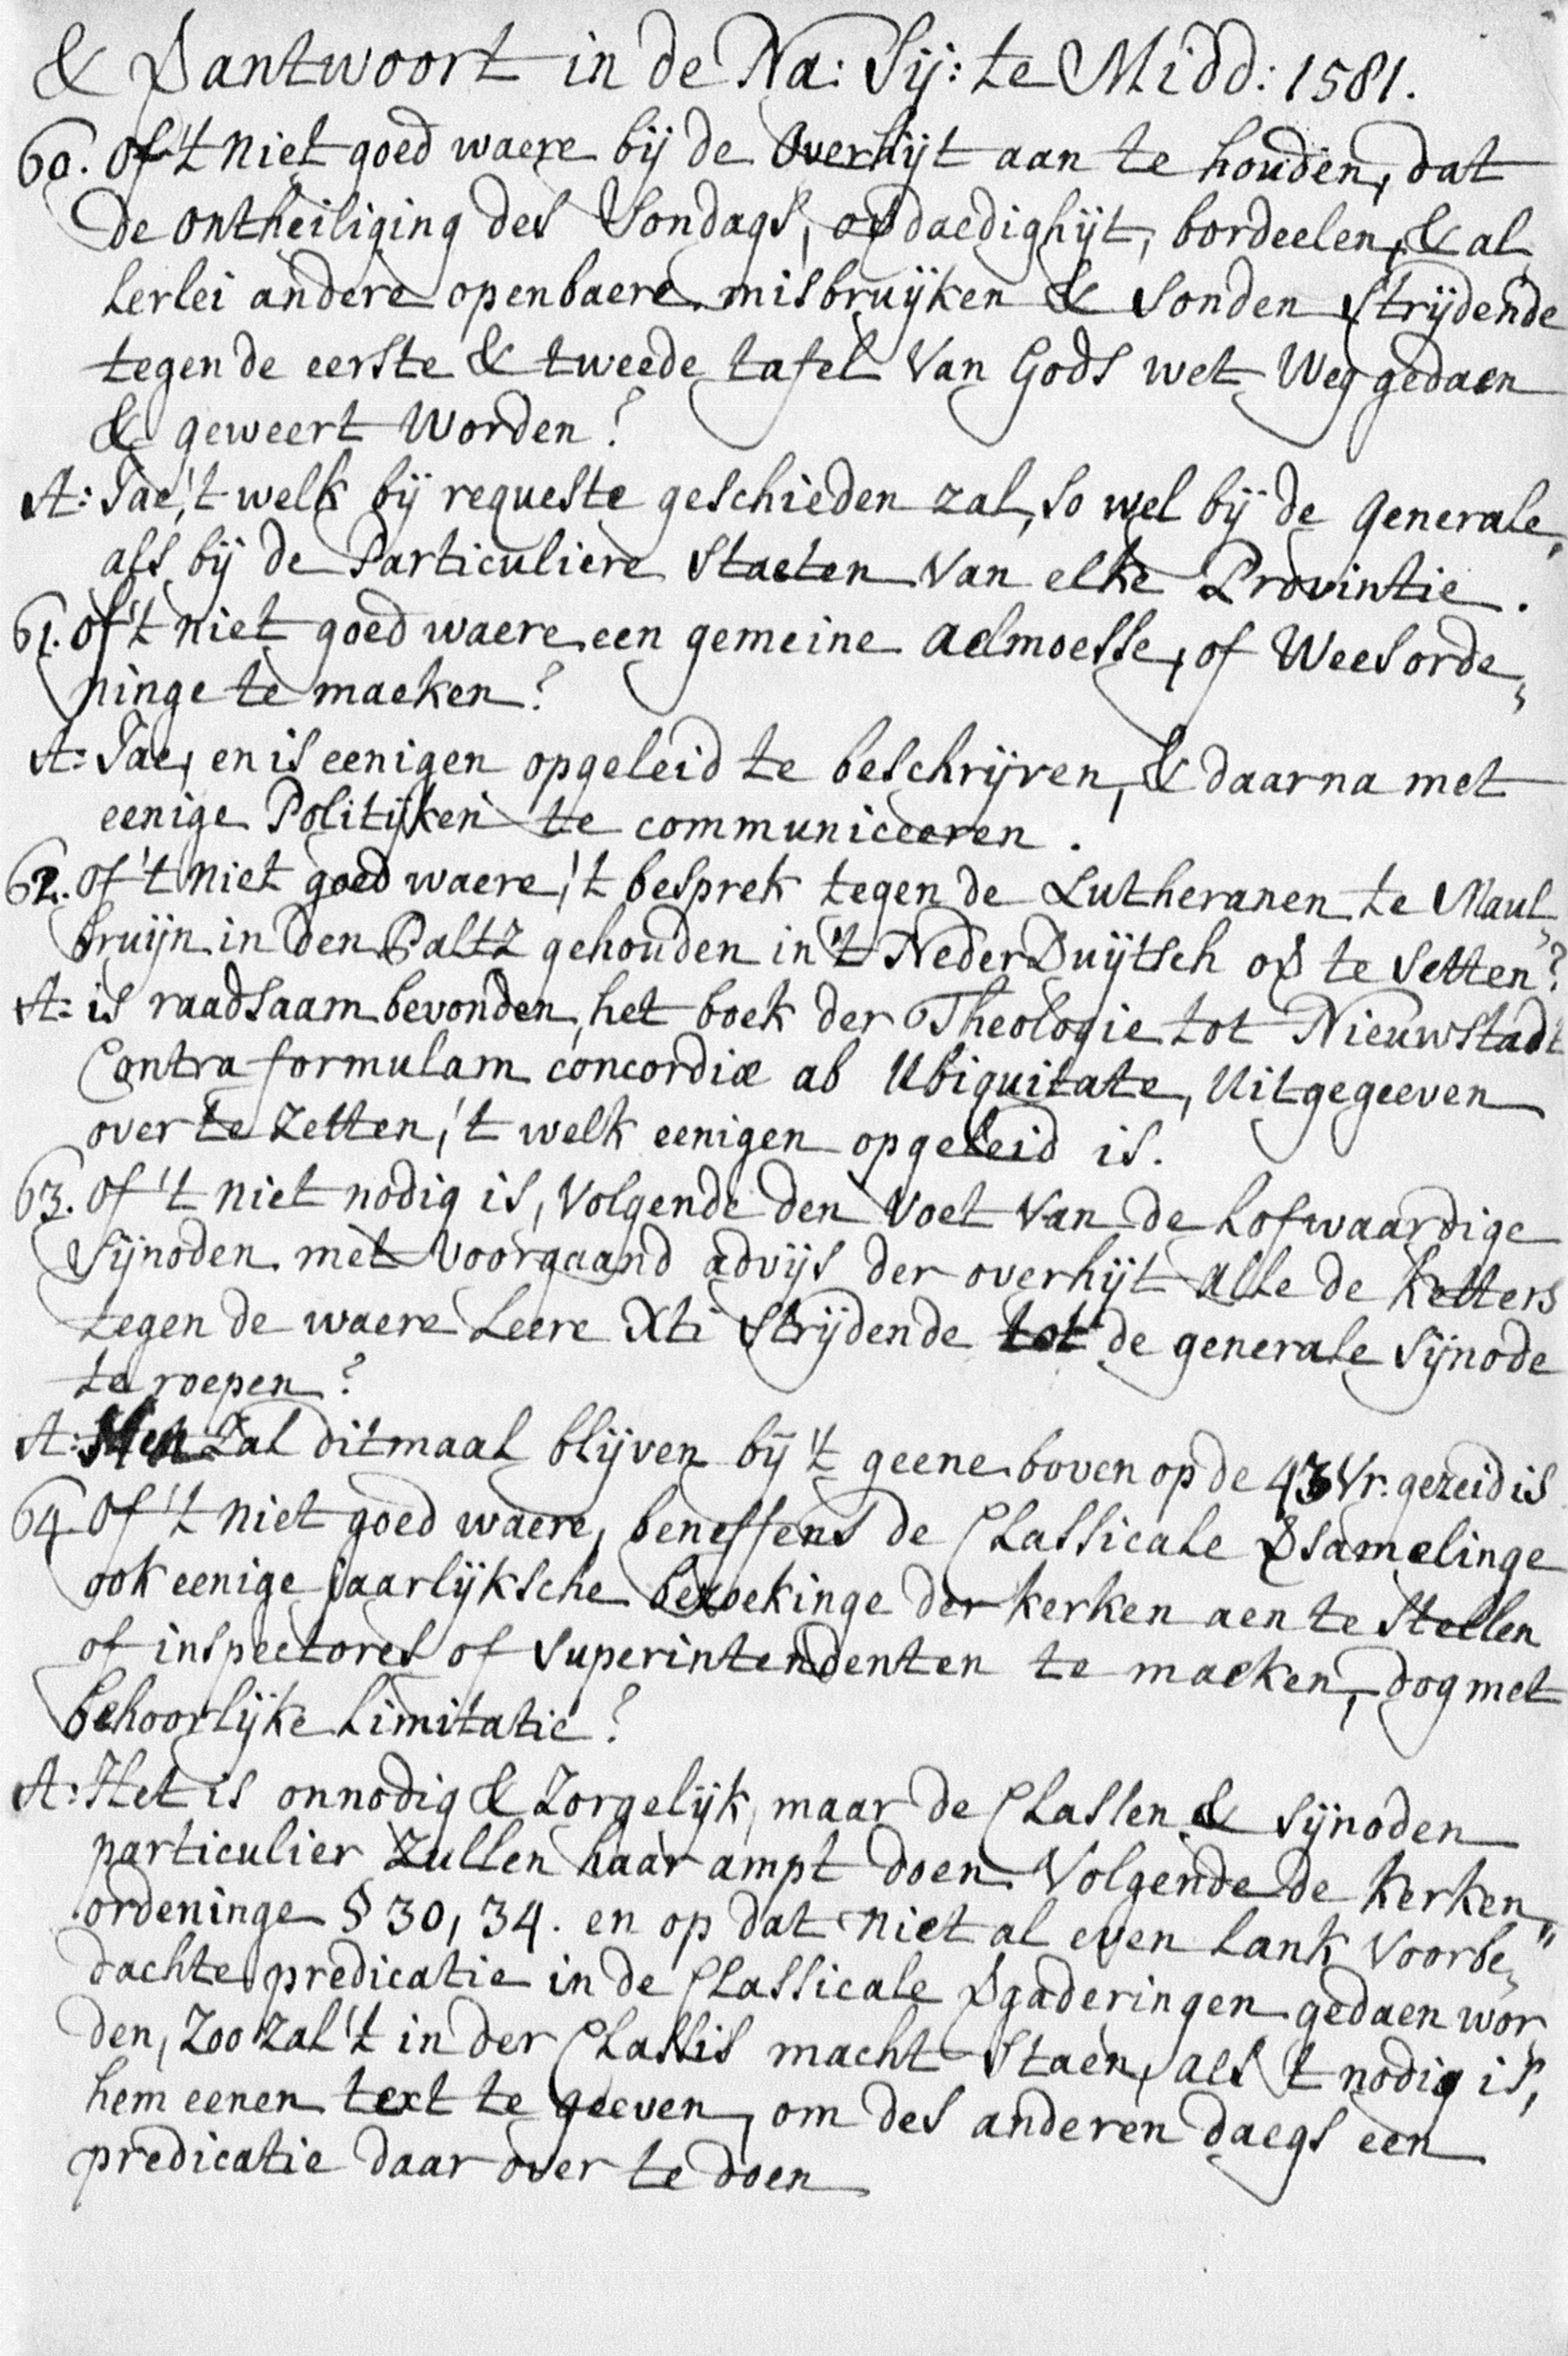 & Dantwoort in de Na: Sij: te Midd: 1581.
60. Of 't niet goed waere bij de Overhijt aan te houden, dat
de ontheiliging des Sondags, o&daedighijt, bordeelen, & al„
lerlei andere openbaere misbruijken & sonden strijdende
tegen de eerste & tweede tafel van Gods wet weg gedaen
& geweert worden?
A: Jae, 't welk bij requeste geschieden zal, so wel bij de generale„
als bij de Particuliere Staeten van elke Provintie.
61. Of 't niet goed waere een gemeine aelmoesse, of Weesorde„
ninge te maeken?
A: Jae, en is eenigen opgeleid te beschrijven, & daarna met
eenige Politijken te communiceeren.
62. Of 't niet goed waere, 't besprek tegen de Lutheranen te Maul„
bruijn in den Paltz gehouden in 't NederDuijtsch o& te setten?
A: is raadsaam bevonden, het boek der Theologie tot Nieuwstadt
Contra formulam concordiæ ab Ubiquitate, Uitgegeeven
over te zetten, 't welk eenigen opgeleid is.
63. Of 't niet nodig is, Volgende den Voet van de Lofwaardige
Sijnoden met voorgaand advijs der overhijt alle de ketters
tegen de waere Leere Xti strijdende tot de generale Sijnode
te roepen?
A: Men Zal ditmaal blijven bij 't geene boven op de 43 Vr. gezeid is
64 Of 't niet goed waere, beneffens de Classicale Dsamelinge
ook eenige jaarlijksche bezoekinge der kerken aen te stellen
of inspectores of superintendenten te maeken, dog met
behoorlijke Limitatie?
A: Het is onnodig & Zorgelijk, maar de Classen & Sijnoden
particulier Zullen haar ampt doen Volgende de Kerken„
ordeninge § 30, 34. en op dat niet al even lank Voorbe„
dachte predicatie in de Classicale Dgaderingen gedaen wor„
den, Zoo zal 't in der Classis macht staen, als 't nodig is,
hem eenen text te geeven, om des anderen daegs een
predicatie daar over te doen